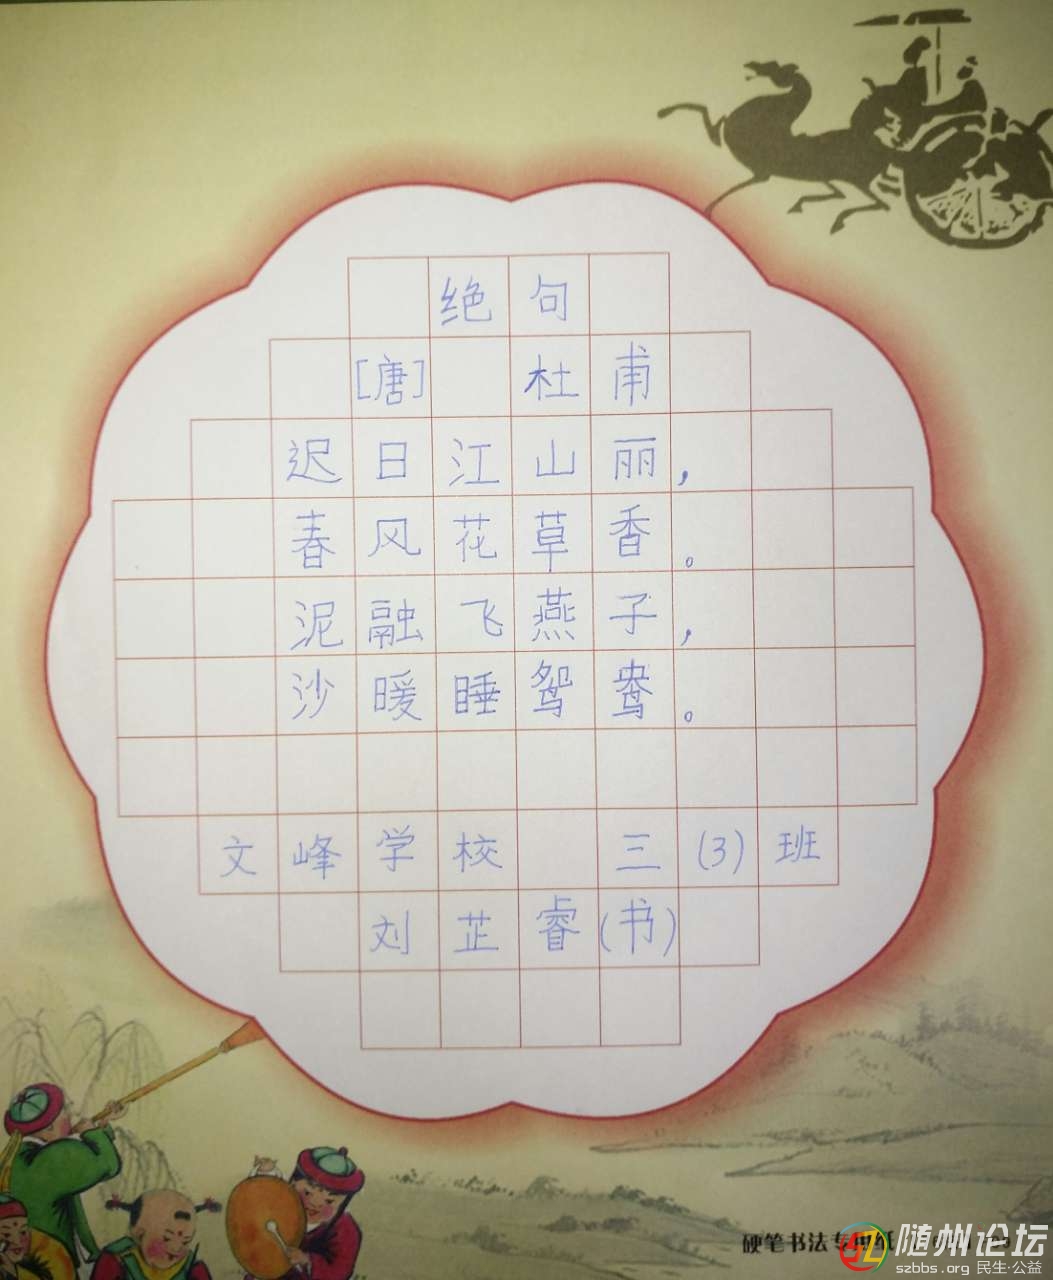 绝句
[唐] 杜甫
迟日江山丽，
春风花草香。
泥融飞燕子，
沙暖睡鸳鸯。
文峰学校 三(3)班
刘芷睿(书)
硬笔书法专用纸
随州论坛
szbbs.org 民生·公益